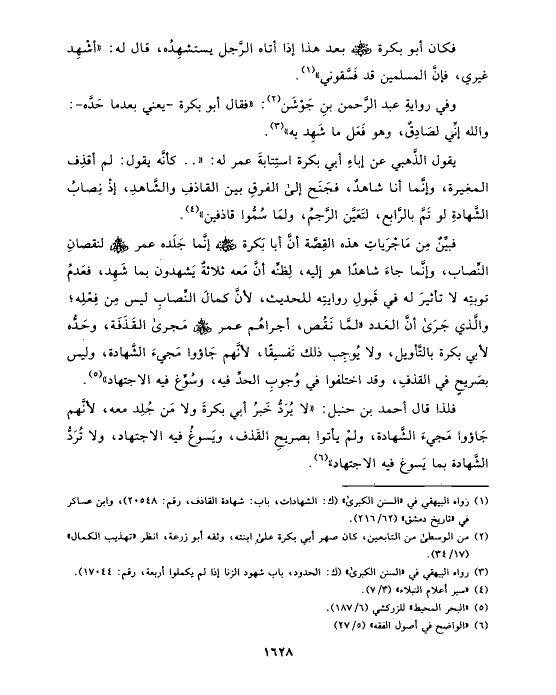 فكان أبو بكرة ﷺ بعد هذا إذا أتاه الرَّجل يستشهِدُه، قال له: «أشْهِد
غيري، فإنَّ المسلمين قد فسَّقوني»(١).
وفي روايةِ عبد الرَّحمن بن جَوْشَن(٢): «فقال أبو بكرة -يعني بعدما حَدَّه-:
والله إنِّي لصَادِقٌ، وهو فَعَل ما شَهِد به»(٣).
يقول الذَّهبي عن إباءِ أبي بكرة استِتابةَ عمر له: «.. كأنَّه يقول: لم أقذِف
المغيرة، وإنَّما أنا شاهدٌ، فجَنَح إلى الفرقِ بين القاذفِ والشَّاهدِ، إذْ نِصابُ
الشَّهادةِ لو تمَّ بالرَّابع، لتَعَيَّن الرَّجمُ، ولما سُمُّوا قاذفين»(٤).
فبيِّنٌ مِن مَاجَرَياتِ هذه القِصَّة أنَّ أبا بَكرة إنَّما جَلَده عمر لنقصانِ
النِّصاب، وإنَّما جاءَ شاهدًا هو إليه، لِظنِّه أنَّ مَعه ثلاثةٌ يَشهدون بما شَهِد، فعَدمُ
توبتِه لا تأثيرَ له في قَبولِ روايتِه للحديث، لأنَّ كمالَ النِّصابِ ليس مِن فِعْلِه؛
والَّذي جَرَىٰ أنَّ العدد «لمَّا نَقُص، أجراهُم عمر مَجرىٰ القَذَفة، وحَدُّه
لأبي بكرة بالتَّأويل، ولا يُوجِب ذلك تَفسيقًا، لأنَّهم جَاؤوا مَجيءَ الشَّهادة، وليس
بصَريحٍ في القذفِ، وقد اختلفوا في وُجوبِ الحدِّ فيه، وسُوِّغ فيه الاجتهاد»(٥).
فلذا قال أحمد بن حنبل: «لا يُرَدُّ خبرُ أبي بكرةَ ولا مَن جُلِد معه، لأنَّهم
جَاؤوا مَجيءَ الشَّهادة، ولمْ يأتوا بصريحِ القذف، ويَسوغُ فيه الاجتهاد، ولا تُرَدُّ
الشَّهادة بما يَسوغ فيه الاجتهاد»(٦).
(١) رواه البيهقي في «السنن الكبرىٰ» (ك: الشهادات، باب: شهادة القاذف، رقم: ٢٠٥٤٨)، وابن عساكر
في «تاريخ دمشق» (٢١٦/٦٢).
(٢) من الوسطىٰ من التابعين، كان صهر أبي بكرة علىٰ ابنته، وثقه أبو زرعة، انظر «تهذيب الكمال»
(٣٤/١٧).
(٣) رواه البيهقي في «السنن الكبرىٰ» (ك: الحدود، باب شهود الزنا إذا لم يكملوا أربعة، رقم: ١٧٠٤٤).
(٤) «سير أعلام النبلاء» (٧/٣).
(٥) «البحر المحيط» للزركشي (١٨٧/٦).
(٦) «الواضح في أصول الفقه» (٢٧/٥)
١٦٢٨